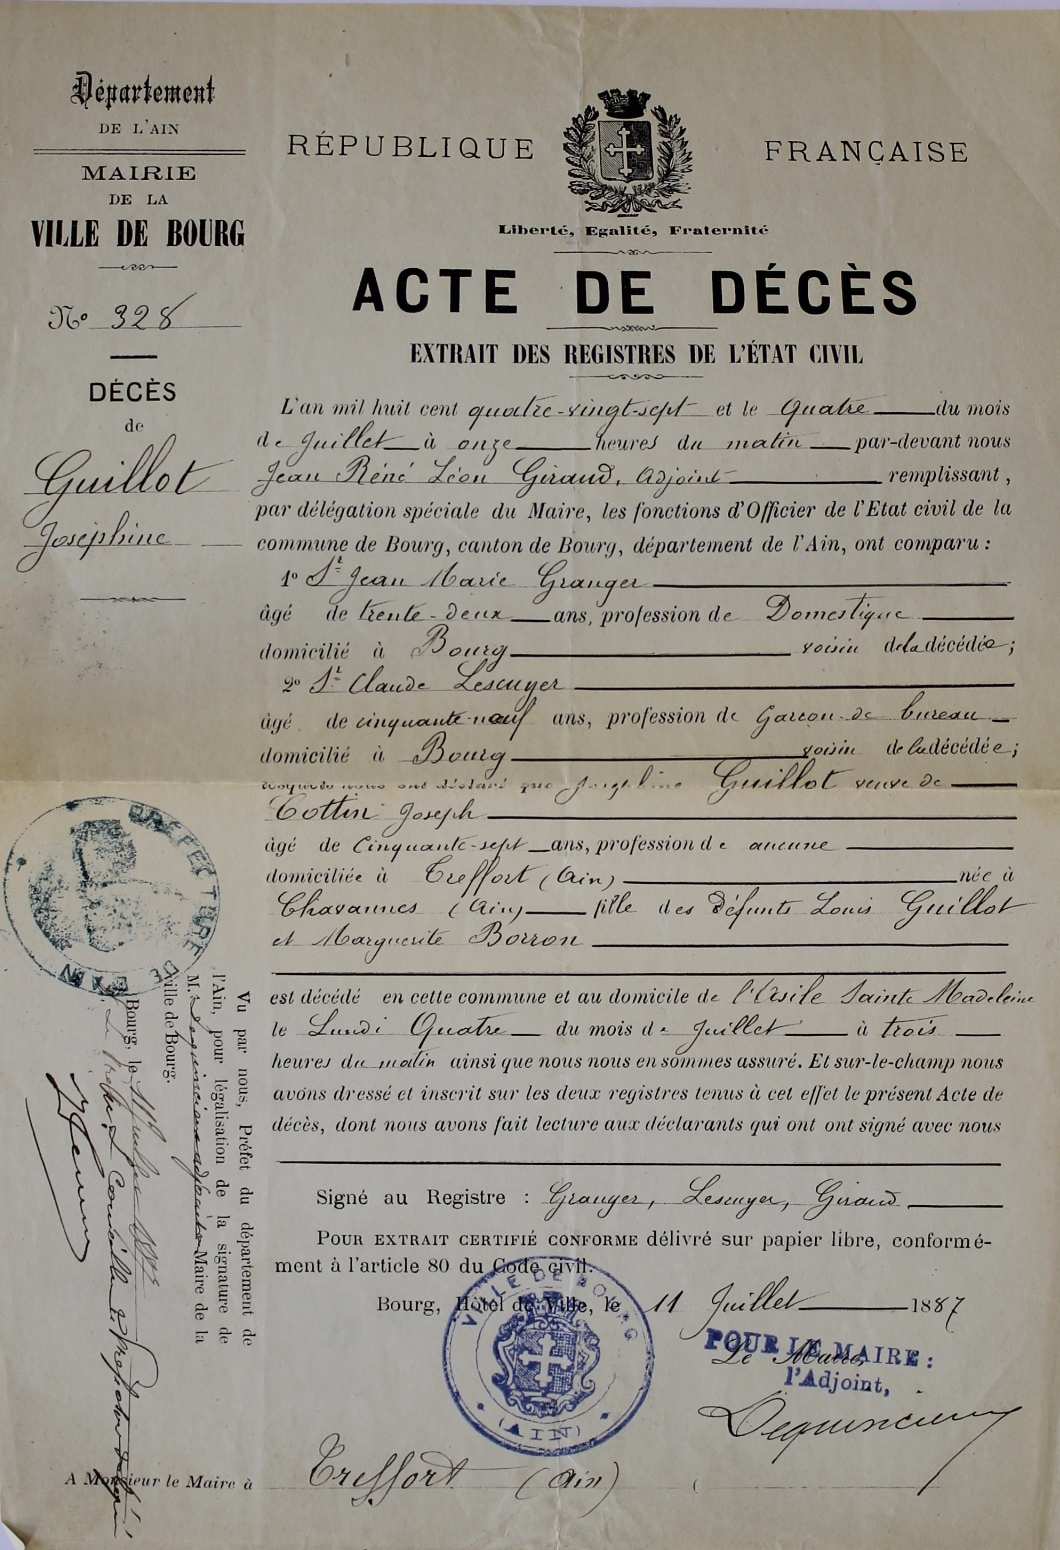 Département
DE L'AIN
MAIRIE
DE LA
VILLE DE BOURG
Nº 328
DÉCÈS
de
Guillot
Joséphine
RÉPUBLIQUE FRANÇAISE
Liberté, Egalité, Fraternité
ACTE DE DÉCÈS
EXTRAIT DES REGISTRES DE L'ÉTAT CIVIL
L'an mil huit cent quatre-vingt-sept et le Quatre du mois
de Juillet à onze heures du matin par-devant nous
Jean Réné Léon Giraud, Adjoint remplissant,
par délégation spéciale du Maire, les fonctions d'Officier de l'Etat civil de la
commune de Bourg, canton de Bourg, département de l'Ain, ont comparu :
1º Sr Jean Marie Granger
âgé de trente-deux ans, profession de Domestique
domicilié à Bourg voisin de la décédée ;
2º Sr Claude Lescuyer
âgé de cinquante-neuf ans, profession de Garçon de bureau
domicilié à Bourg voisin de la décédée ;
lesquels nous ont déclaré que Joséphine Guillot veuve de
Cottin Joseph
âgé de Cinquante-sept ans, profession de aucune
domiciliée à Treffort (Ain) née à
Chavannes (Ain) fille des défunts Louis Guillot
et Marguerite Borron
est décédé en cette commune et au domicile de l'Asile Sainte Madeleine
le Lundi Quatre du mois de Juillet à trois
heures du matin ainsi que nous nous en sommes assuré. Et sur-le-champ nous
avons dressé et inscrit sur les deux registres tenus à cet effet le présent Acte de
décès, dont nous avons fait lecture aux déclarants qui ont ont signé avec nous
Signé au Registre : Granger, Lescuyer, Giraud
POUR EXTRAIT CERTIFIÉ CONFORME délivré sur papier libre, conformé-
ment à l'article 80 du Code civil.
Bourg, Hôtel de Ville, le 11 Juillet 1887
Le Maire,
POUR LE MAIRE :
l'Adjoint,
VILLE DE BOURG
(AIN)
A Monsieur le Maire à Treffort (Ain)
PRÉFECTURE
AIN
Vu par nous, Préfet du département de
l'Ain, pour légalisation de la signature de
M. adjoint Maire de la
ville de Bourg.
Bourg, le